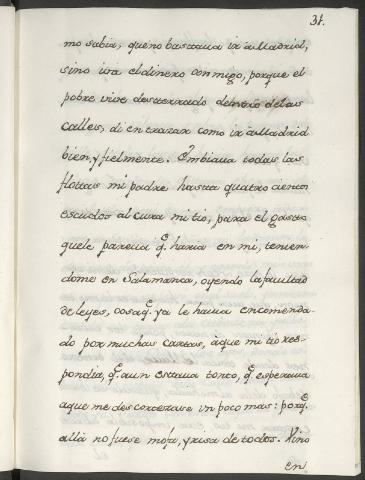 31.
mo sabia, que no bastaua ir à Madrid,
sino iva el dinero conmigo, porque el
pobre vive desterrado dentro de las
calles, di en trazar como ir à Madrid
bien, y fielmente. Embiaua todas las
flottas mi padre hasta quatro cientos
escudos al cura mi tio, para el gasto
que le parecia q.e haria en mi, tenien-
dome en Salamanca, oyendo la facultad
de leyes, cosa q.e ya le hauia encomenda-
do por muchas cartas, à que mi tio res-
pondia, q.e aun estaua tonto, q.e esperaua
a que me descortezase un poco mas: porq.e
allà no fuese mofa, y risa de todos. Vino
en